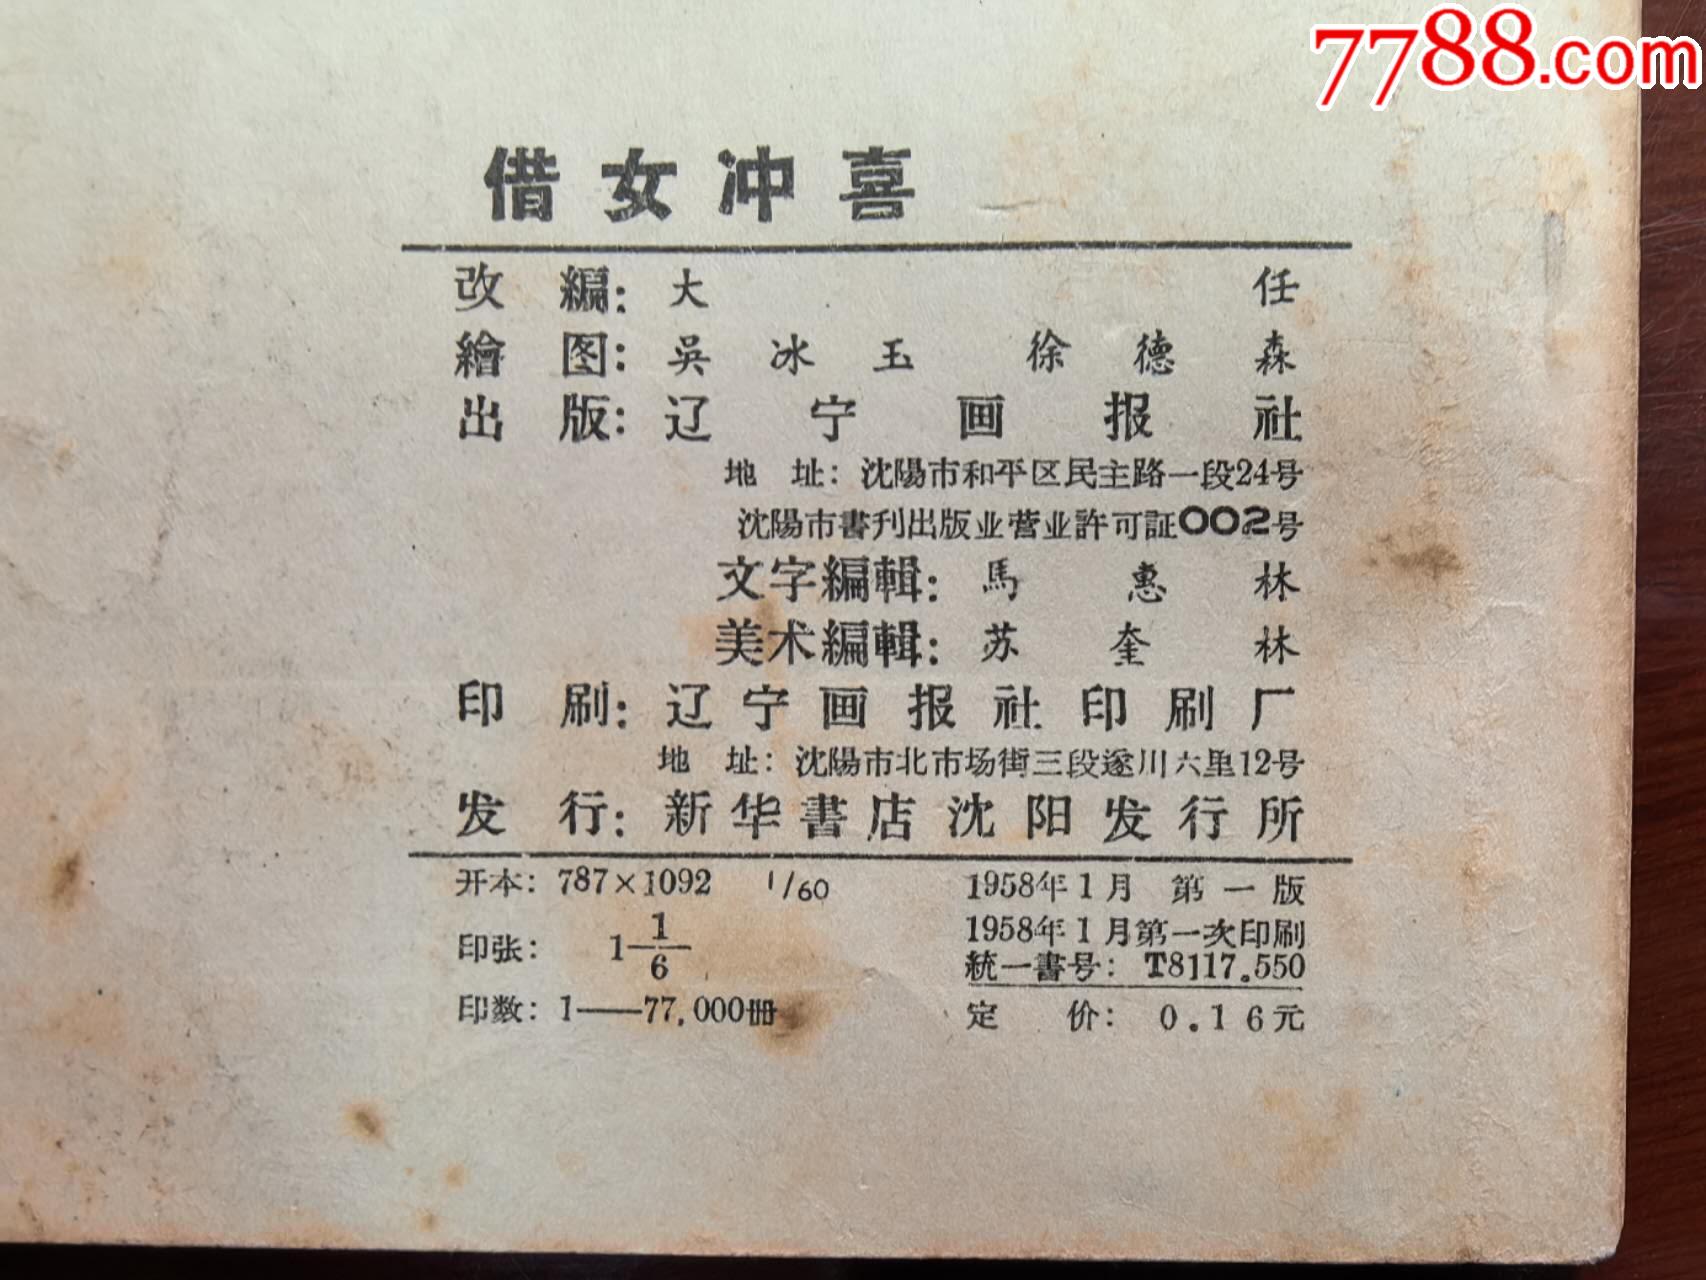 7788.com
借女冲喜
改編：大任
繪图：吳冰玉 徐德森
出版：辽宁画报社
地址：沈陽市和平区民主路一段24号
沈陽市書刊出版业营业許可証002号
文字編輯：馬惠林
美术編輯：苏奎林
印刷：辽宁画报社印刷厂
地址：沈陽市北市场街三段遂川六里12号
发行：新华書店沈阳发行所
开本：787×1092 1/60
印张：1 1/6
印数：1——77,000册
1958年1月第一版
1958年1月第一次印刷
統一書号：T8117.550
定价：0.16元